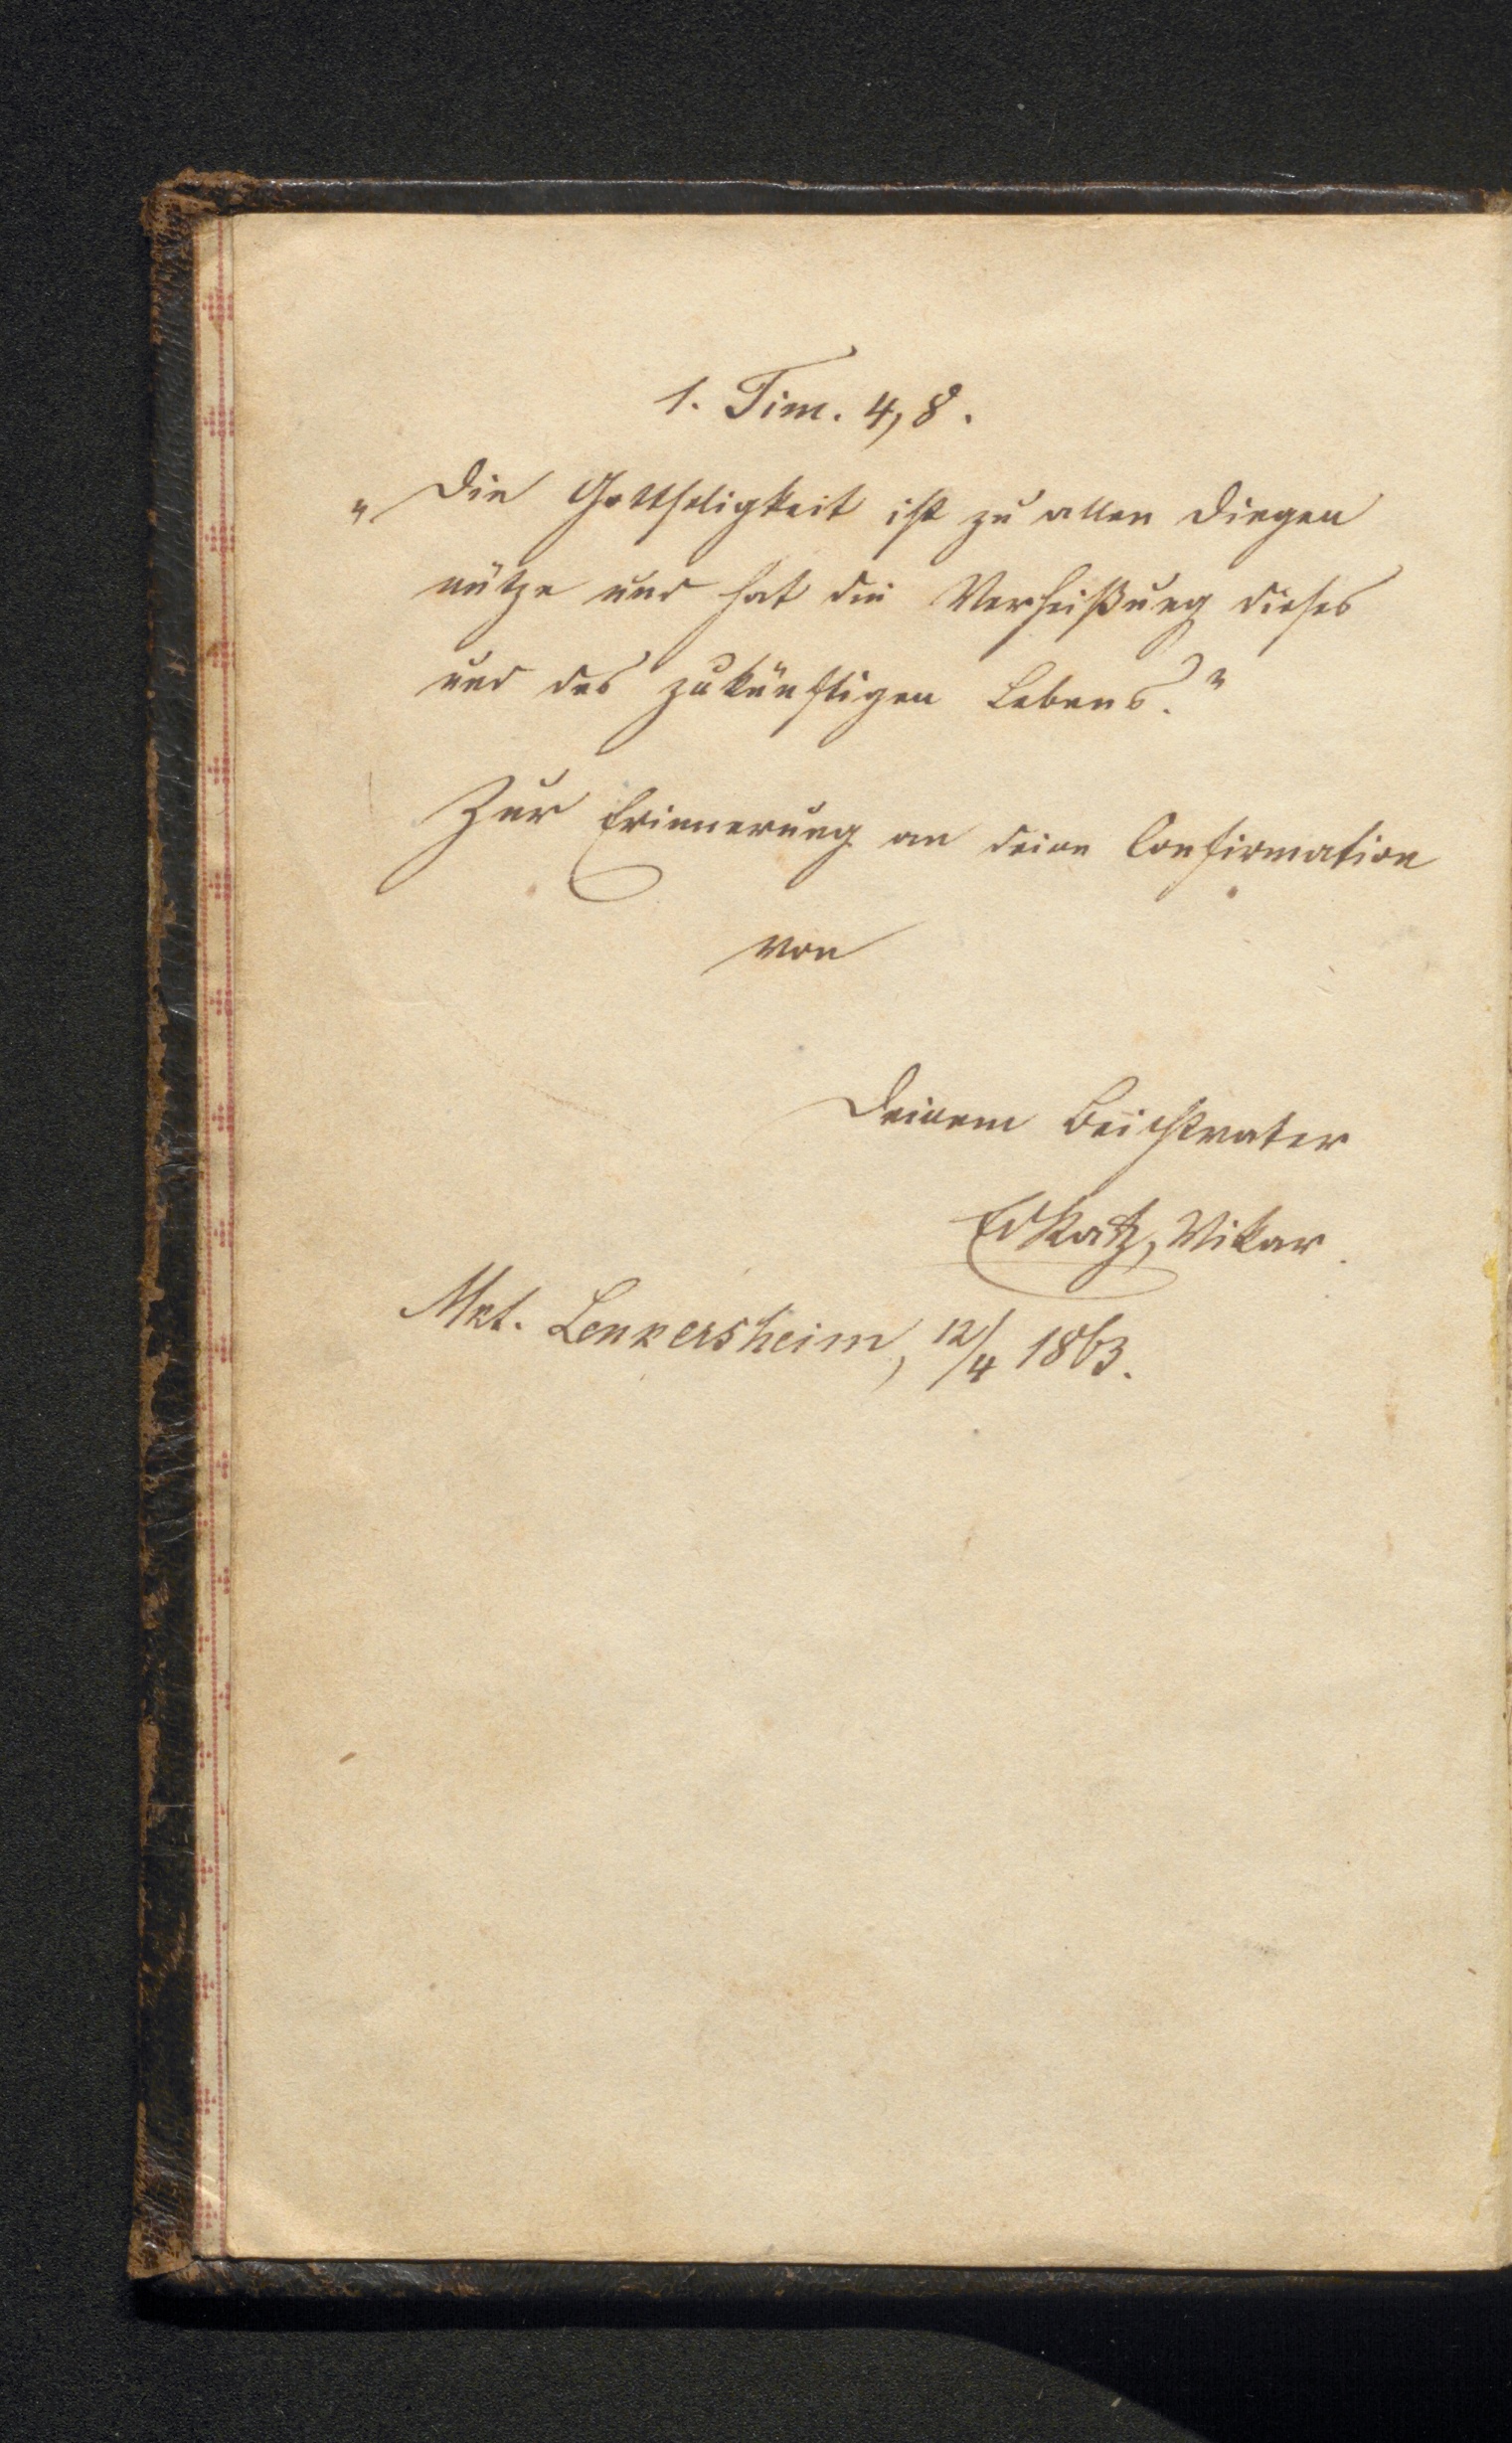 1. Tim. 4, 8.
„Die Gottseligkeit ist zu allen Dingen
nütze und hat die Verheißung dieses
und des zukünftigen Lebens."
Zur Erinnerung an deine Confirmation
von
Deinem Beichtvater
Ed Katz, Vikar.
Mkt. Lenkersheim, 12/4 1863.